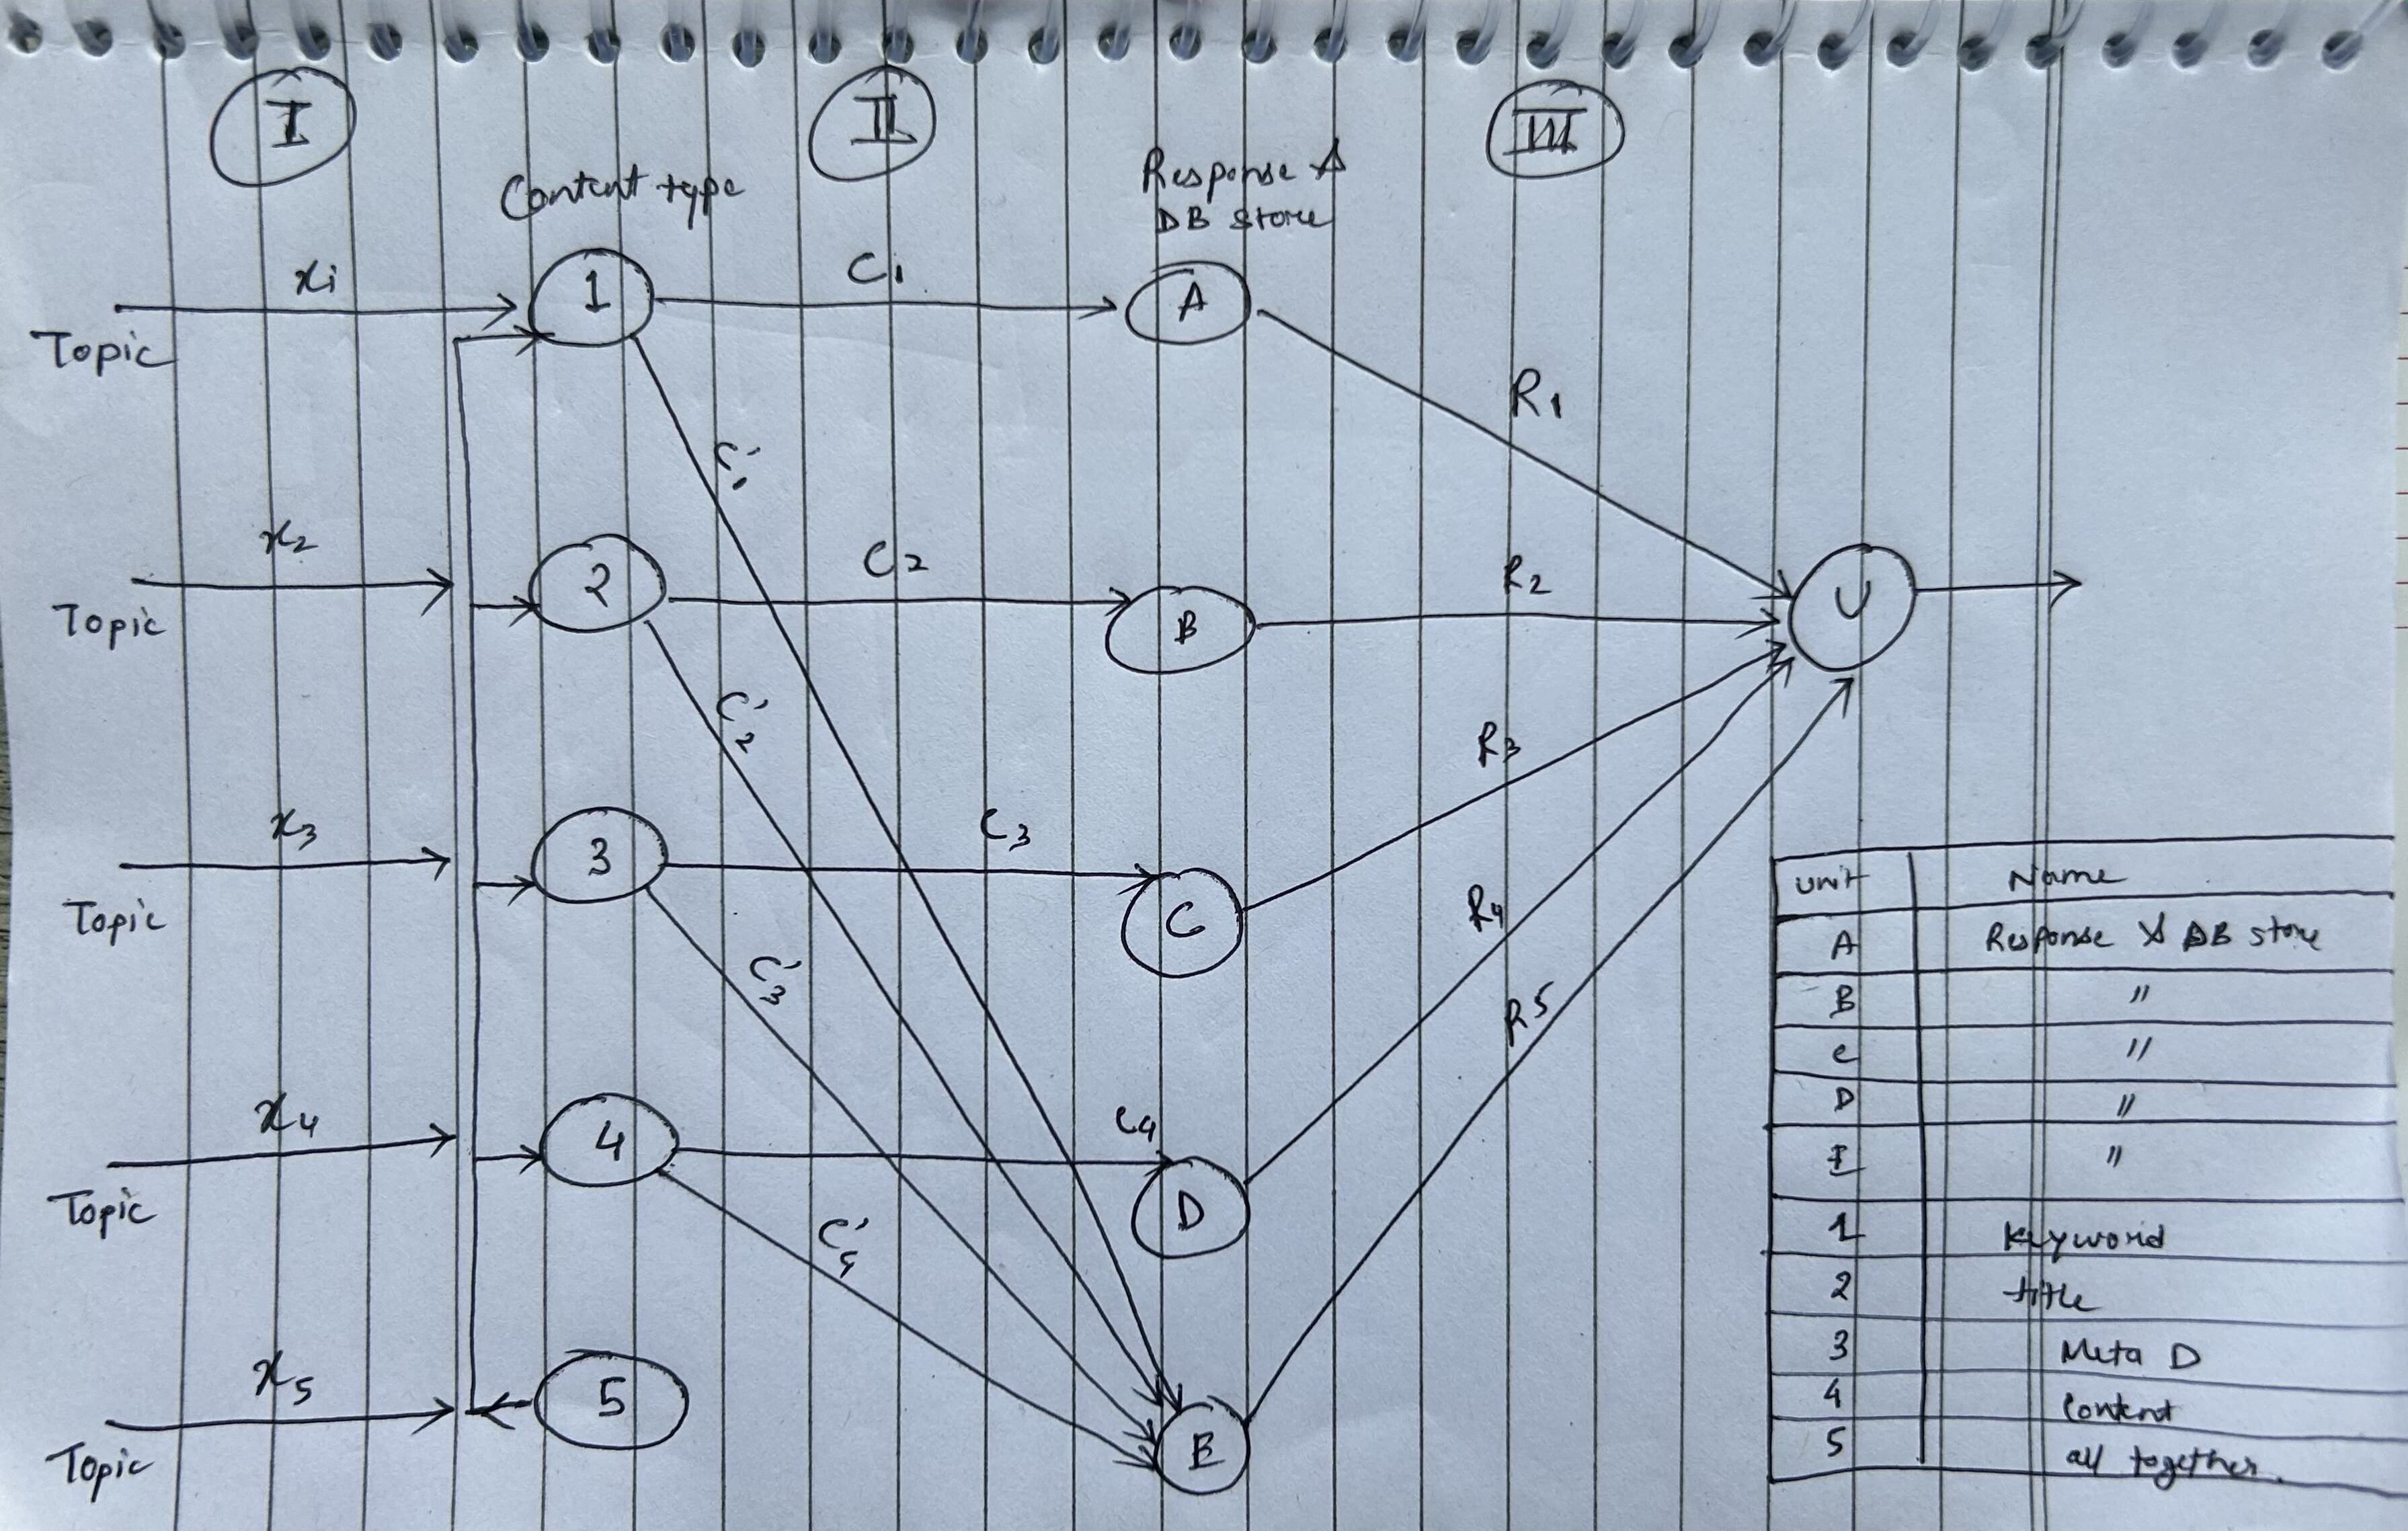 I
II
III
Content type
Response &
DB store
x1
Topic
1
C1
A
R1
C'1
x2
Topic
2
C2
B
R2
U
C'2
x3
Topic
3
C3
C
R3
C'3
x4
Topic
4
C4
D
R4
C'4
x5
Topic
5
E
R5
unit Name
A Response & DB store
B "
C "
D "
E "
1 Keyword
2 title
3 Meta D
4 Content
5 all together.